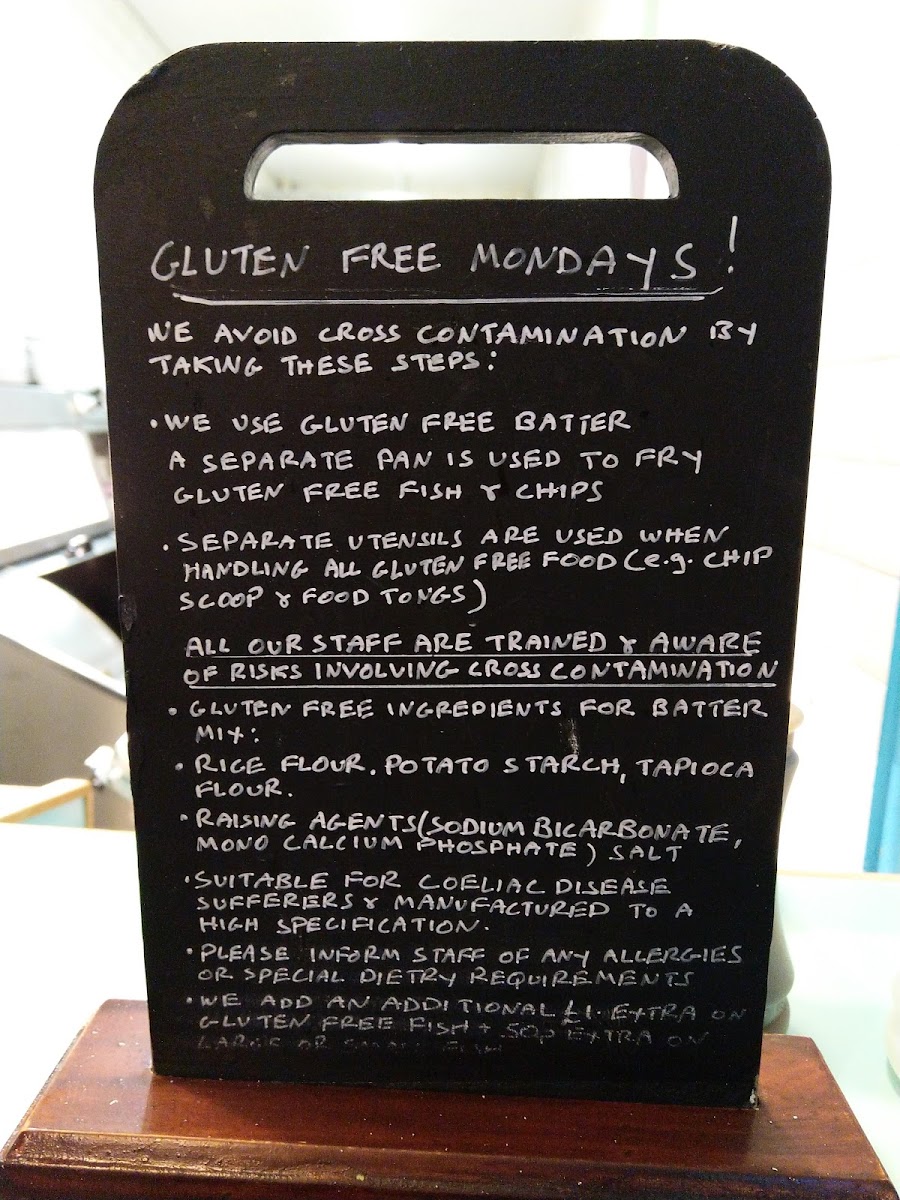 GLUTEN FREE MONDAYS!
WE AVOID CROSS CONTAMINATION BY
TAKING THESE STEPS:
• WE USE GLUTEN FREE BATTER
A SEPARATE PAN IS USED TO FRY
GLUTEN FREE FISH & CHIPS
• SEPARATE UTENSILS ARE USED WHEN
HANDLING ALL GLUTEN FREE FOOD (e.g. CHIP
SCOOP & FOOD TONGS)
ALL OUR STAFF ARE TRAINED & AWARE
OF RISKS INVOLVING CROSS CONTAMINATION
• GLUTEN FREE INGREDIENTS FOR BATTER
MIX:
• RICE FLOUR. POTATO STARCH, TAPIOCA
FLOUR.
• RAISING AGENTS (SODIUM BICARBONATE,
MONO CALCIUM PHOSPHATE) SALT
• SUITABLE FOR COELIAC DISEASE
SUFFERERS & MANUFACTURED TO A
HIGH SPECIFICATION.
• PLEASE INFORM STAFF OF ANY ALLERGIES
OR SPECIAL DIETRY REQUIREMENTS
• WE ADD AN ADDITIONAL £1. EXTRA ON
GLUTEN FREE FISH + 50p EXTRA ON
LARGE OR